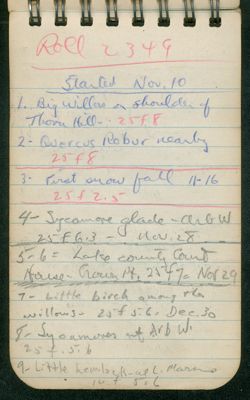 Roll 2349
Started Nov. 10
1. Big Willow on shoulder of
Thorn Hill - 25 f 8
2 - Quercus Robur nearby
25 f 8
3 - First snow fall 11-16
25 f 2.5
4 - Sycamore glade - Arb W
25 f 6.3 - Nov. 28
5-6 = Lake County Court
House - Crown Pt. 25 f 7 = Nov 29
7 - Little birch among the
willows - 25 f 5.6 - Dec. 30
8 - Sycamores of Arb W.
25 f. 5.6
9 - Little hemlock - at L. Marmo
f 5.6